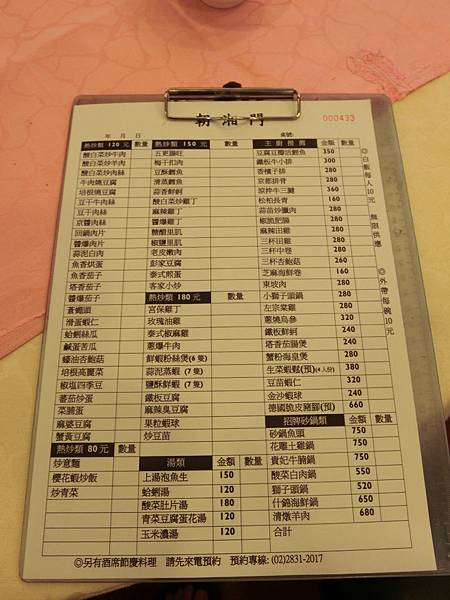 朝湘門
000433
年 月 日
桌號:
熱炒類 120 元 數量
酸白菜炒牛肉
酸白菜炒羊肉
酸白菜炒肉絲
牛肉燒豆腐
培根燒豆腐
豆干牛肉絲
豆干羊肉絲
京醬肉絲
回鍋肉片
醬爆肉片
蒜泥白肉
魚香烘蛋
魚香茄子
塔香茄子
醬爆茄子
蒼蠅頭
滑蛋蝦仁
蛤蜊絲瓜
鹹蛋苦瓜
蠔油杏鮑菇
培根高麗菜
椒塩四季豆
蕃茄炒蛋
菜脯蛋
麻婆豆腐
蟹黃豆腐
熱炒類 80 元 數量
炒意麵
櫻花蝦炒飯
炒青菜
熱炒類 150 元 數量
五更腸旺
梅干扣肉
豆酥鱈魚
清蒸鱈魚
蒜香鮮蚵
酸白菜炒雞丁
麻辣雞丁
醬爆雞丁
糖醋里肌
椒鹽里肌
老皮嫩肉
彭家豆腐
泰式煎蛋
客家小炒
熱炒類 180 元 數量
宮保雞丁
玫瑰油雞
泰式椒麻雞
蔥爆牛肉
鮮蝦粉絲煲(6隻)
蒜泥蒸蝦 (7隻)
鹽酥鮮蝦 (7隻)
鐵板豆腐
麻辣臭豆腐
果粒蝦球
炒豆苗
湯類 金額 數量
上湯泡魚生 150
蛤蜊湯 120
酸菜肚片湯 180
青菜豆腐蛋花湯 120
玉米濃湯 120
主廚推薦 金額 數量
豆腐豆瓣活鱷魚 350
鐵板牛小排 300
香檳子排 280
京都排骨 280
涼拌牛三腱 360
松柏長青 160
蒜苗炒臘肉 280
椒麻肥腸 280
麻辣田雞 280
三杯田雞 280
三杯中卷 280
三杯杏鮑菇 260
芝麻海鮮卷 160
東坡肉 280
小獅子頭鍋 280
左宗棠雞 280
蔥燒烏參 320
鐵板鮮蚵 240
塔香茄腸煲 240
蟹粉海皇煲 280
生菜蝦鬆(預)(4人份) 380
豆苗蝦仁 320
金沙蝦球 240
德國脆皮豬腳(預) 660
招牌砂鍋類 金額 數量
砂鍋魚頭 750
花雕土雞鍋 750
貴妃牛腩鍋 750
酸菜白肉鍋 550
獅子頭鍋 520
什錦海鮮鍋 650
清燉羊肉 680
合計
◎白飯每人10元 無限供應
◎外帶每碗10元
◎另有酒席節慶料理 請先來電預約 預約專線: (02)2831-2017